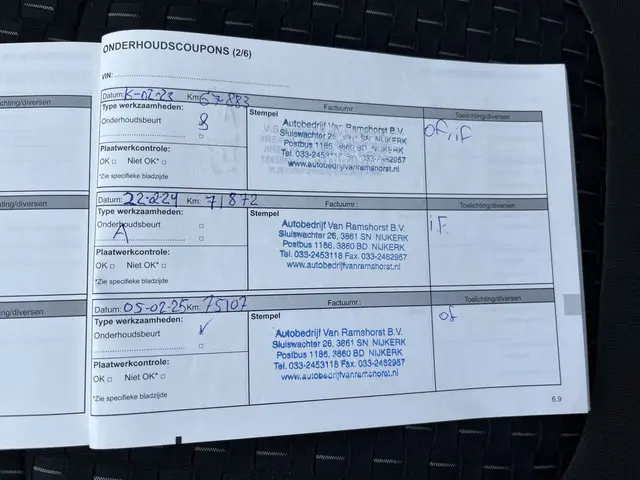 ONDERHOUDSCOUPONS (2/6)
VIN:
Datum: Km: 67883 Factuurnr.: Toelichting/diversen
Type werkzaamheden:
Stempel
Onderhoudsbeurt
Plaatwerkcontrole:
OK □ Niet OK* □
*Zie specifieke bladzijde
Autobedrijf Van Ramshorst B.V.
Sluiswachter 26, 3861 SN NIJKERK
Postbus 1186, 3860 BD NIJKERK
Tel. 033-2453118 Fax. 033-2462957
www.autobedrijfvanramshorst.nl
of, if
Datum: 22-2-24 Km: 71872 Factuurnr.: Toelichting/diversen
Type werkzaamheden:
Stempel
Onderhoudsbeurt □
A □
Plaatwerkcontrole:
OK □ Niet OK* □
*Zie specifieke bladzijde
Autobedrijf Van Ramshorst B.V.
Sluiswachter 26, 3861 SN NIJKERK
Postbus 1186, 3860 BD NIJKERK
Tel. 033-2453118 Fax. 033-2462957
www.autobedrijfvanramshorst.nl
if.
Datum: 05-02-25 Km: 75107 Factuurnr.: Toelichting/diversen
Type werkzaamheden:
Stempel
Onderhoudsbeurt ✓
□
Plaatwerkcontrole:
OK □ Niet OK* □
*Zie specifieke bladzijde
Autobedrijf Van Ramshorst B.V.
Sluiswachter 26, 3861 SN NIJKERK
Postbus 1186, 3860 BD NIJKERK
Tel. 033-2453118 Fax. 033-2462957
www.autobedrijfvanramshorst.nl
of
6.9